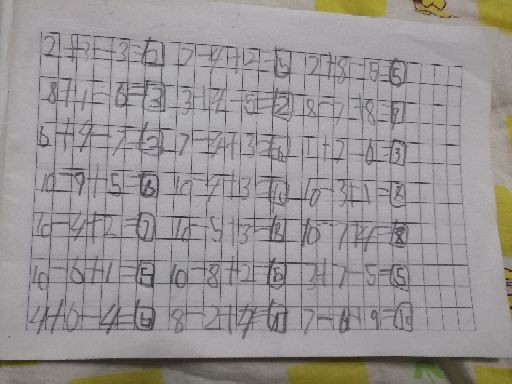 2+3-3=2 7-4+2=5 2+8-5=5
8+1-6=3 3+4-5=2 8-7+8=9
6+4-7=3 7-4+3=6 1+2-0=3
10-9+5=6 10-7+3=6 10-3+1=8
10-4+2=7 10-5+3=8 10-7+4=8
10-6+1=5 10-8+2=5 3+7-5=5
4+6-4=6 8-2+4=10 7-6+9=10